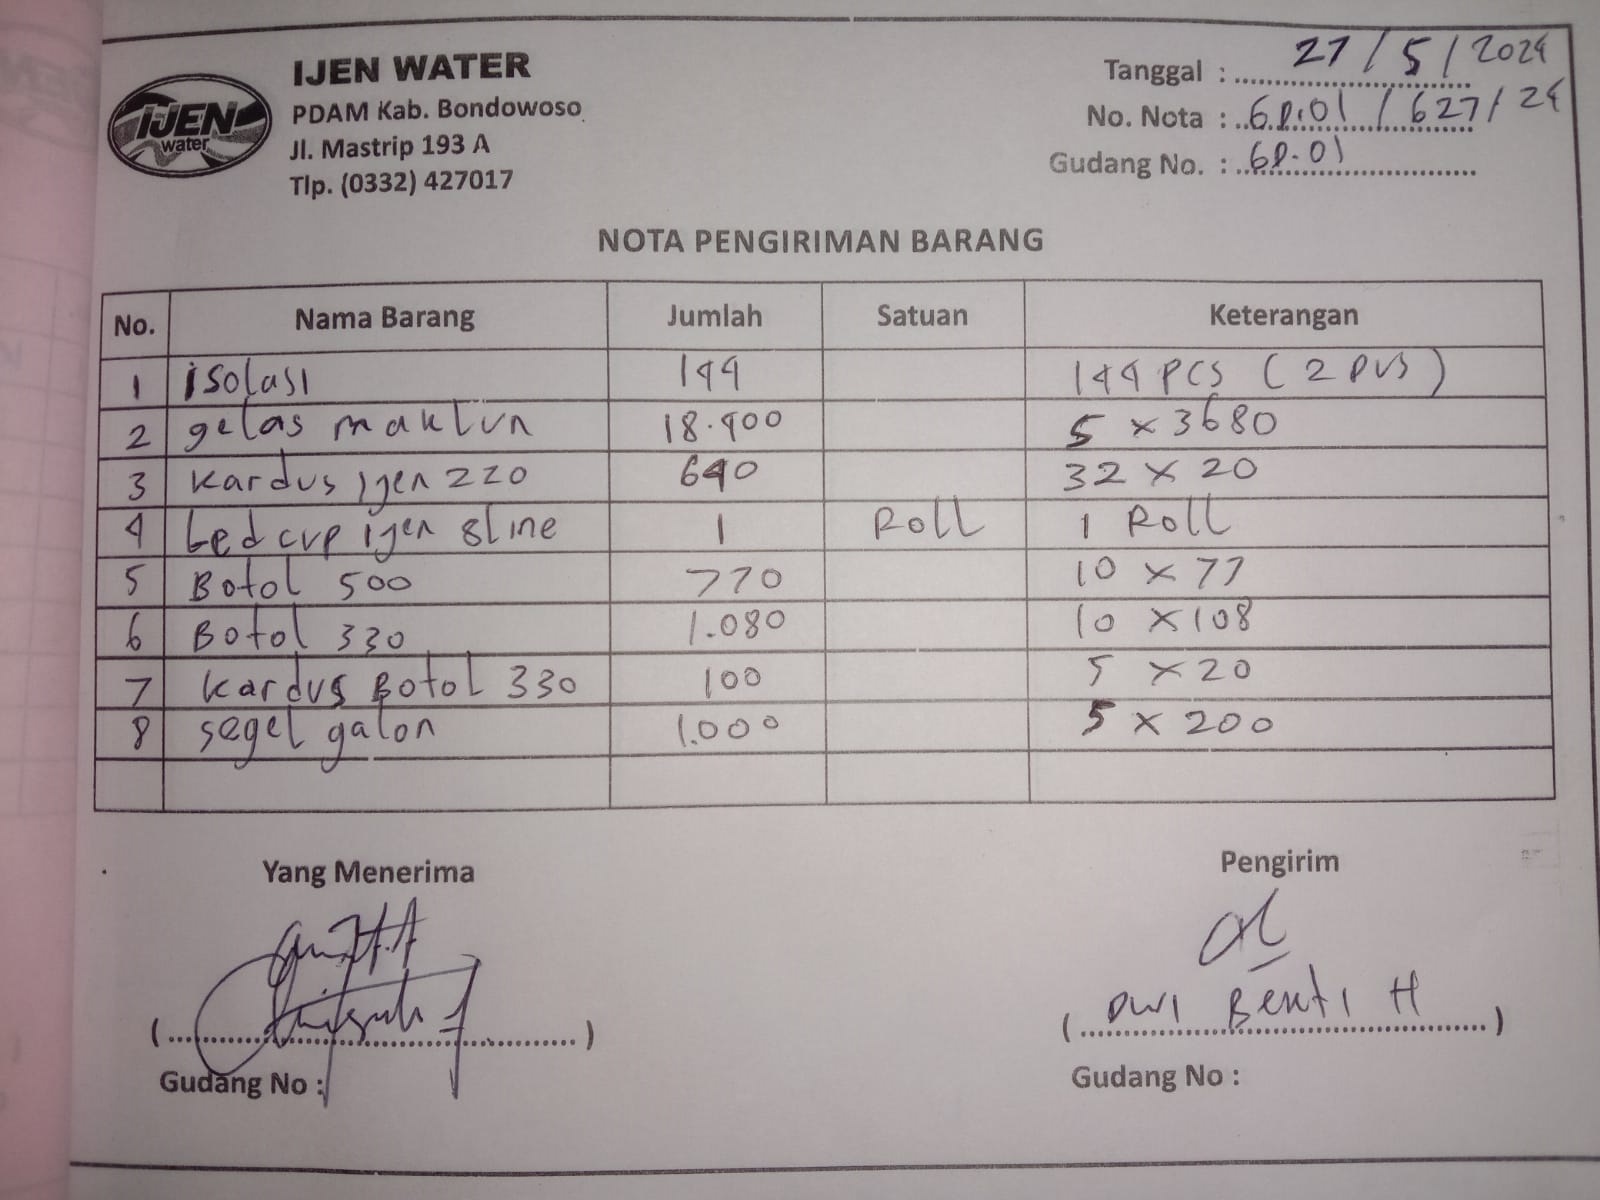 IJEN WATER
PDAM Kab. Bondowoso
Jl. Mastrip 193 A
Tlp. (0332) 427017
IJEN
water
Tanggal : 27 / 5 / 2024
No. Nota : GP.01 / 627 / 24
Gudang No. : GP.01
NOTA PENGIRIMAN BARANG
No. Nama Barang Jumlah Satuan Keterangan
1 isolasi 144 144 PCS ( 2 PUS )
2 gelas maklun 18.400 5 x 3680
3 Kardus ijen 220 640 32 x 20
4 Led cup ijen 8 line 1 Roll 1 Roll
5 Botol 500 770 10 x 77
6 Botol 330 1.080 10 x 108
7 Kardus Botol 330 100 5 x 20
8 segel galon 1.000 5 x 200
Yang Menerima
Pengirim
Dwi Benti H
Gudang No :
Gudang No :